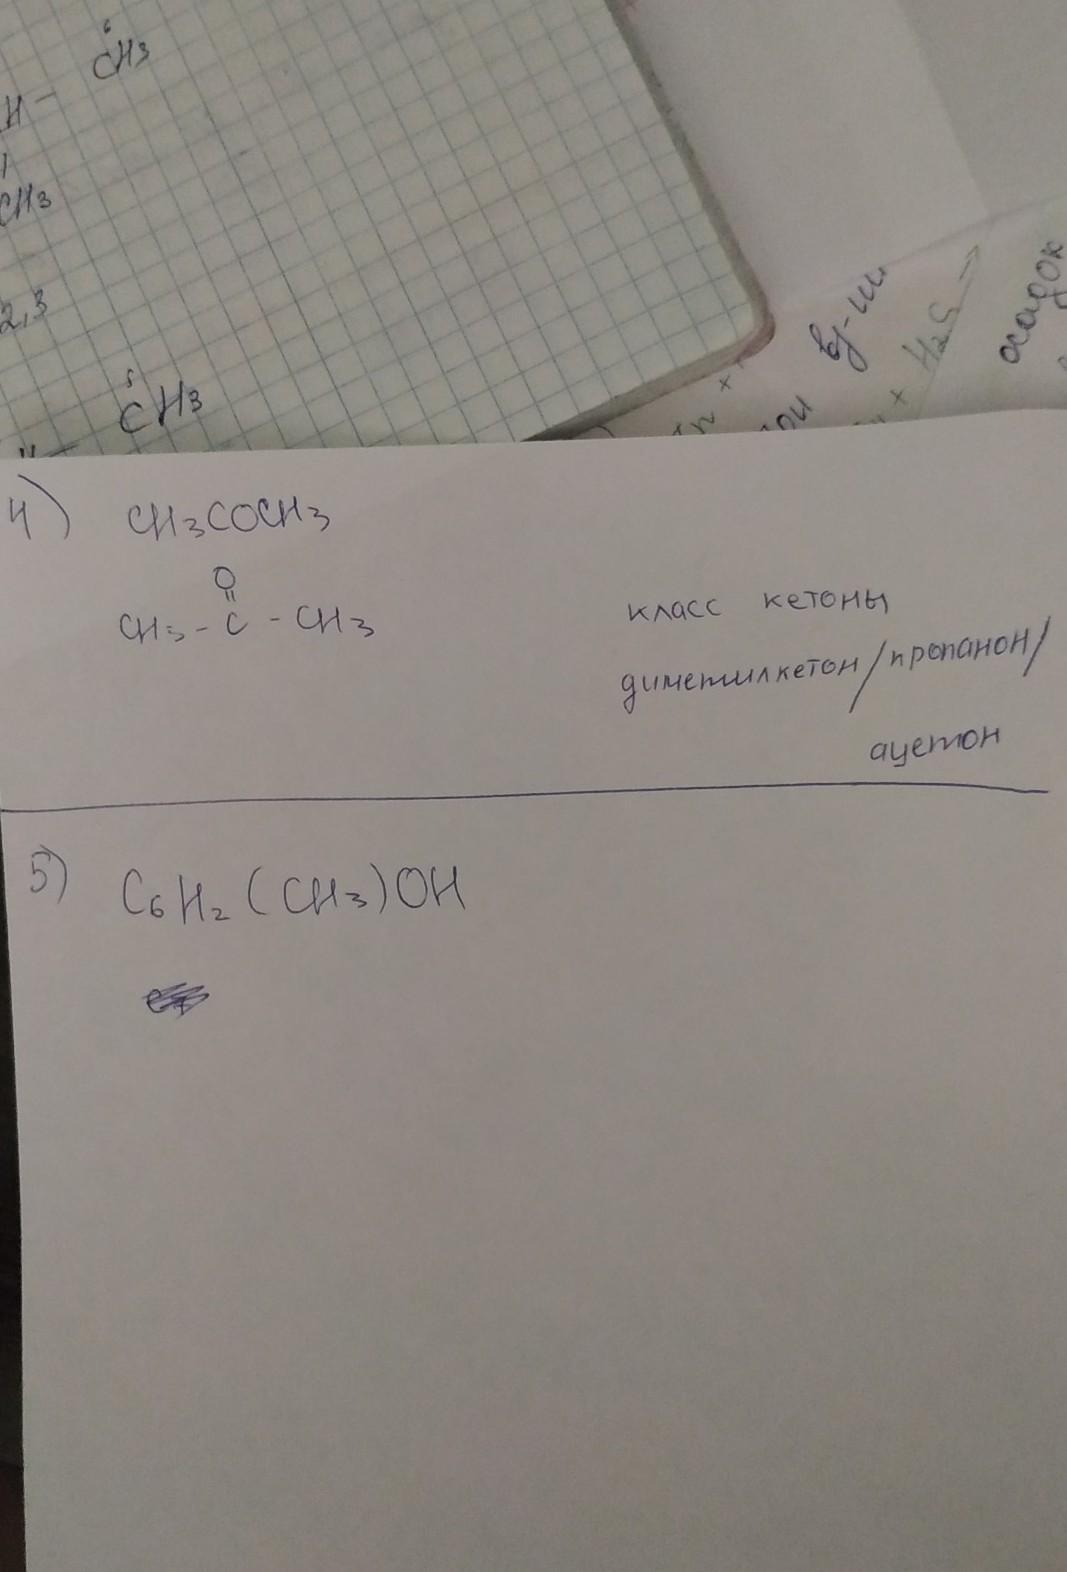 6
CH3
H -
CH3
2,3
5
CH3
H2S
осадок
4) CH3COCH3
O
CH3 - C - CH3
класс кетоны
диметилкетон/пропанон/
ацетон
5) C6H2(CH3)OH